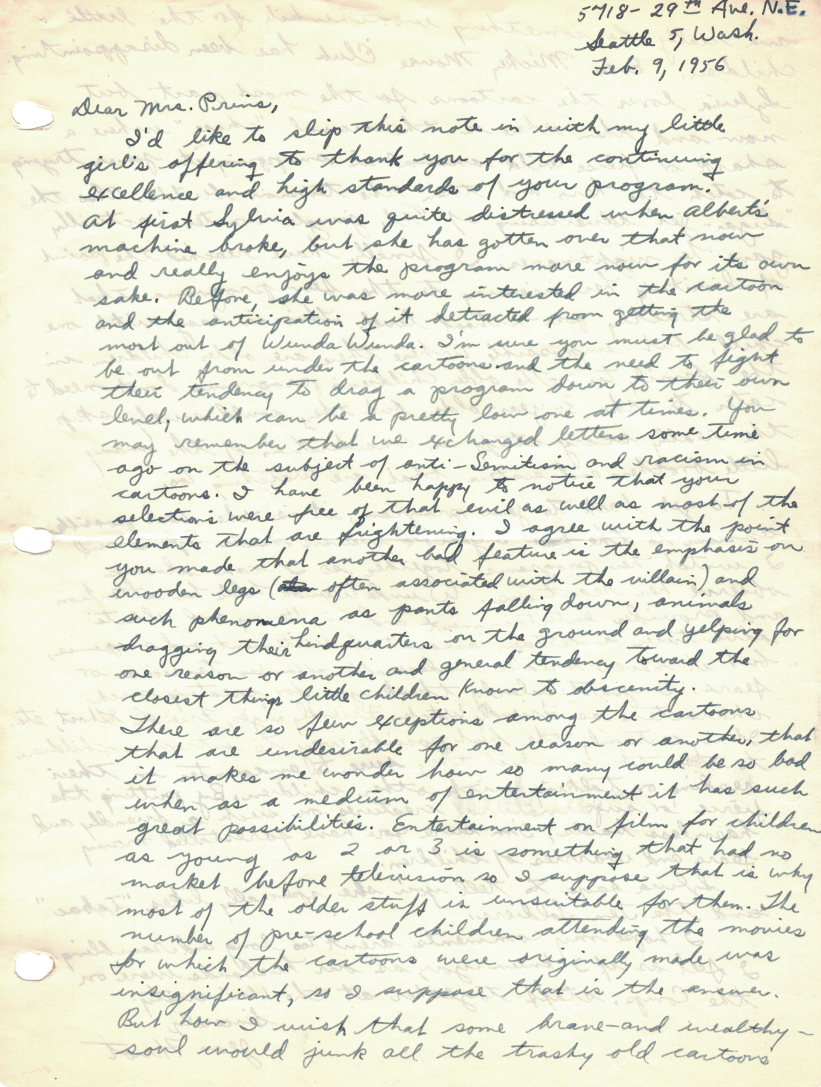 5718 - 29th Ave. N.E.
Seattle 5, Wash.
Feb. 9, 1956
Dear Mrs. Prins,
I'd like to slip this note in with my little
girl's offering to thank you for the continuing
excellence and high standards of your program.
At first Sylvia was quite distressed when Albert's
machine broke, but she has gotten over that now
and really enjoys the program more now for its own
sake. Before, she was more interested in the cartoon
and the anticipation of it detracted from getting the
most out of Wunda Wunda. I'm sure you must be glad to
be out from under the cartoons and the need to fight
their tendency to drag a program down to their own
level, which can be a pretty low one at times. You
may remember that we exchanged letters some time
ago on the subject of anti-Semitism and racism in
cartoons. I have been happy to notice that your
selections were free of that evil as well as most of the
elements that are frightening. I agree with the point
you made that another bad feature is the emphasis on
wooden legs (often associated with the villain) and
such phenomena as pants falling down, animals
dragging their hindquarters on the ground and yelping for
one reason or another and general tendency toward the
closest things little children know to obscenity.
There are so few exceptions among the cartoons
that are undesirable for one reason or another, that
it makes me wonder how so many could be so bad
when as a medium of entertainment it has such
great possibilities. Entertainment on film for children
as young as 2 or 3 is something that had no
market before television so I suppose that is why
most of the older stuff is unsuitable for them. The
number of pre-school children attending the movies
for which the cartoons were originally made was
insignificant, so I suppose that is the answer.
But how I wish that some brave-and wealthy-
soul would junk all the trashy old cartoons